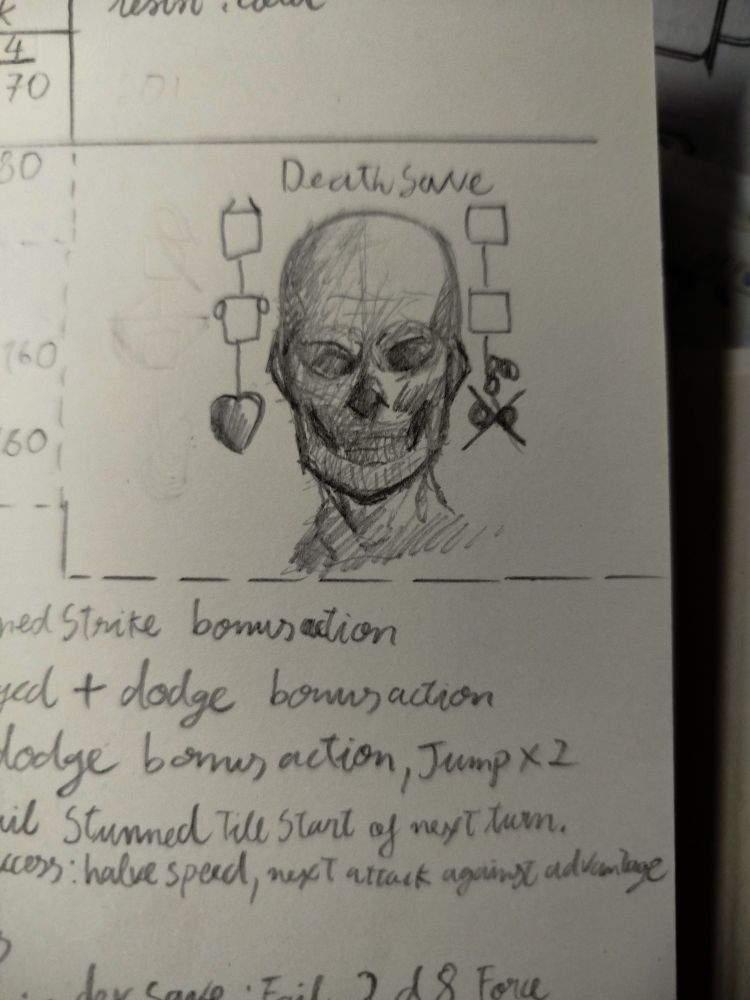 4
70
80
Death Save
160
60
ned Strike bonus action
+ dodge bonus action
dodge bonus action, Jump x 2
ail Stunned Till Start of next turn.
ccess: halve speed, next attack against advantage
dex save: Fail 2 d8 Force